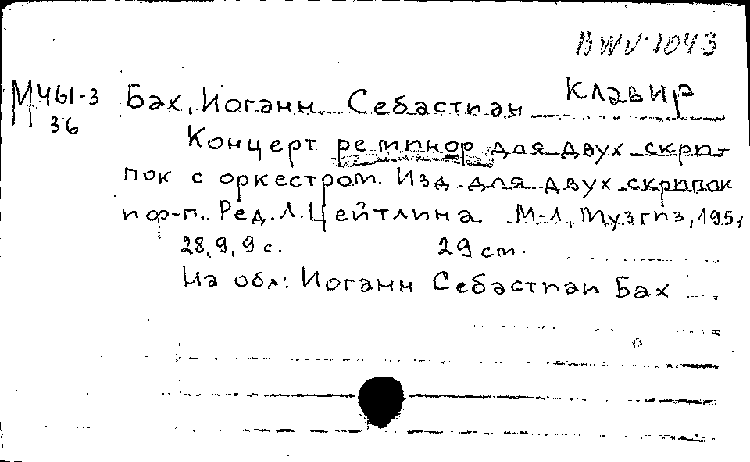 BWV 1043
Клавир
М461-3
36
Бах, Иоганн Себастиан
Концерт ре минор для двух скрип-
пок с оркестром. Изд. для двух скрипок
и ф-п. Ред. Л. Цейтлина. М-Л, Музгиз, 195
28, 9, 9 с. 29 cm.
На обл: Иоганн Себастиан Бах